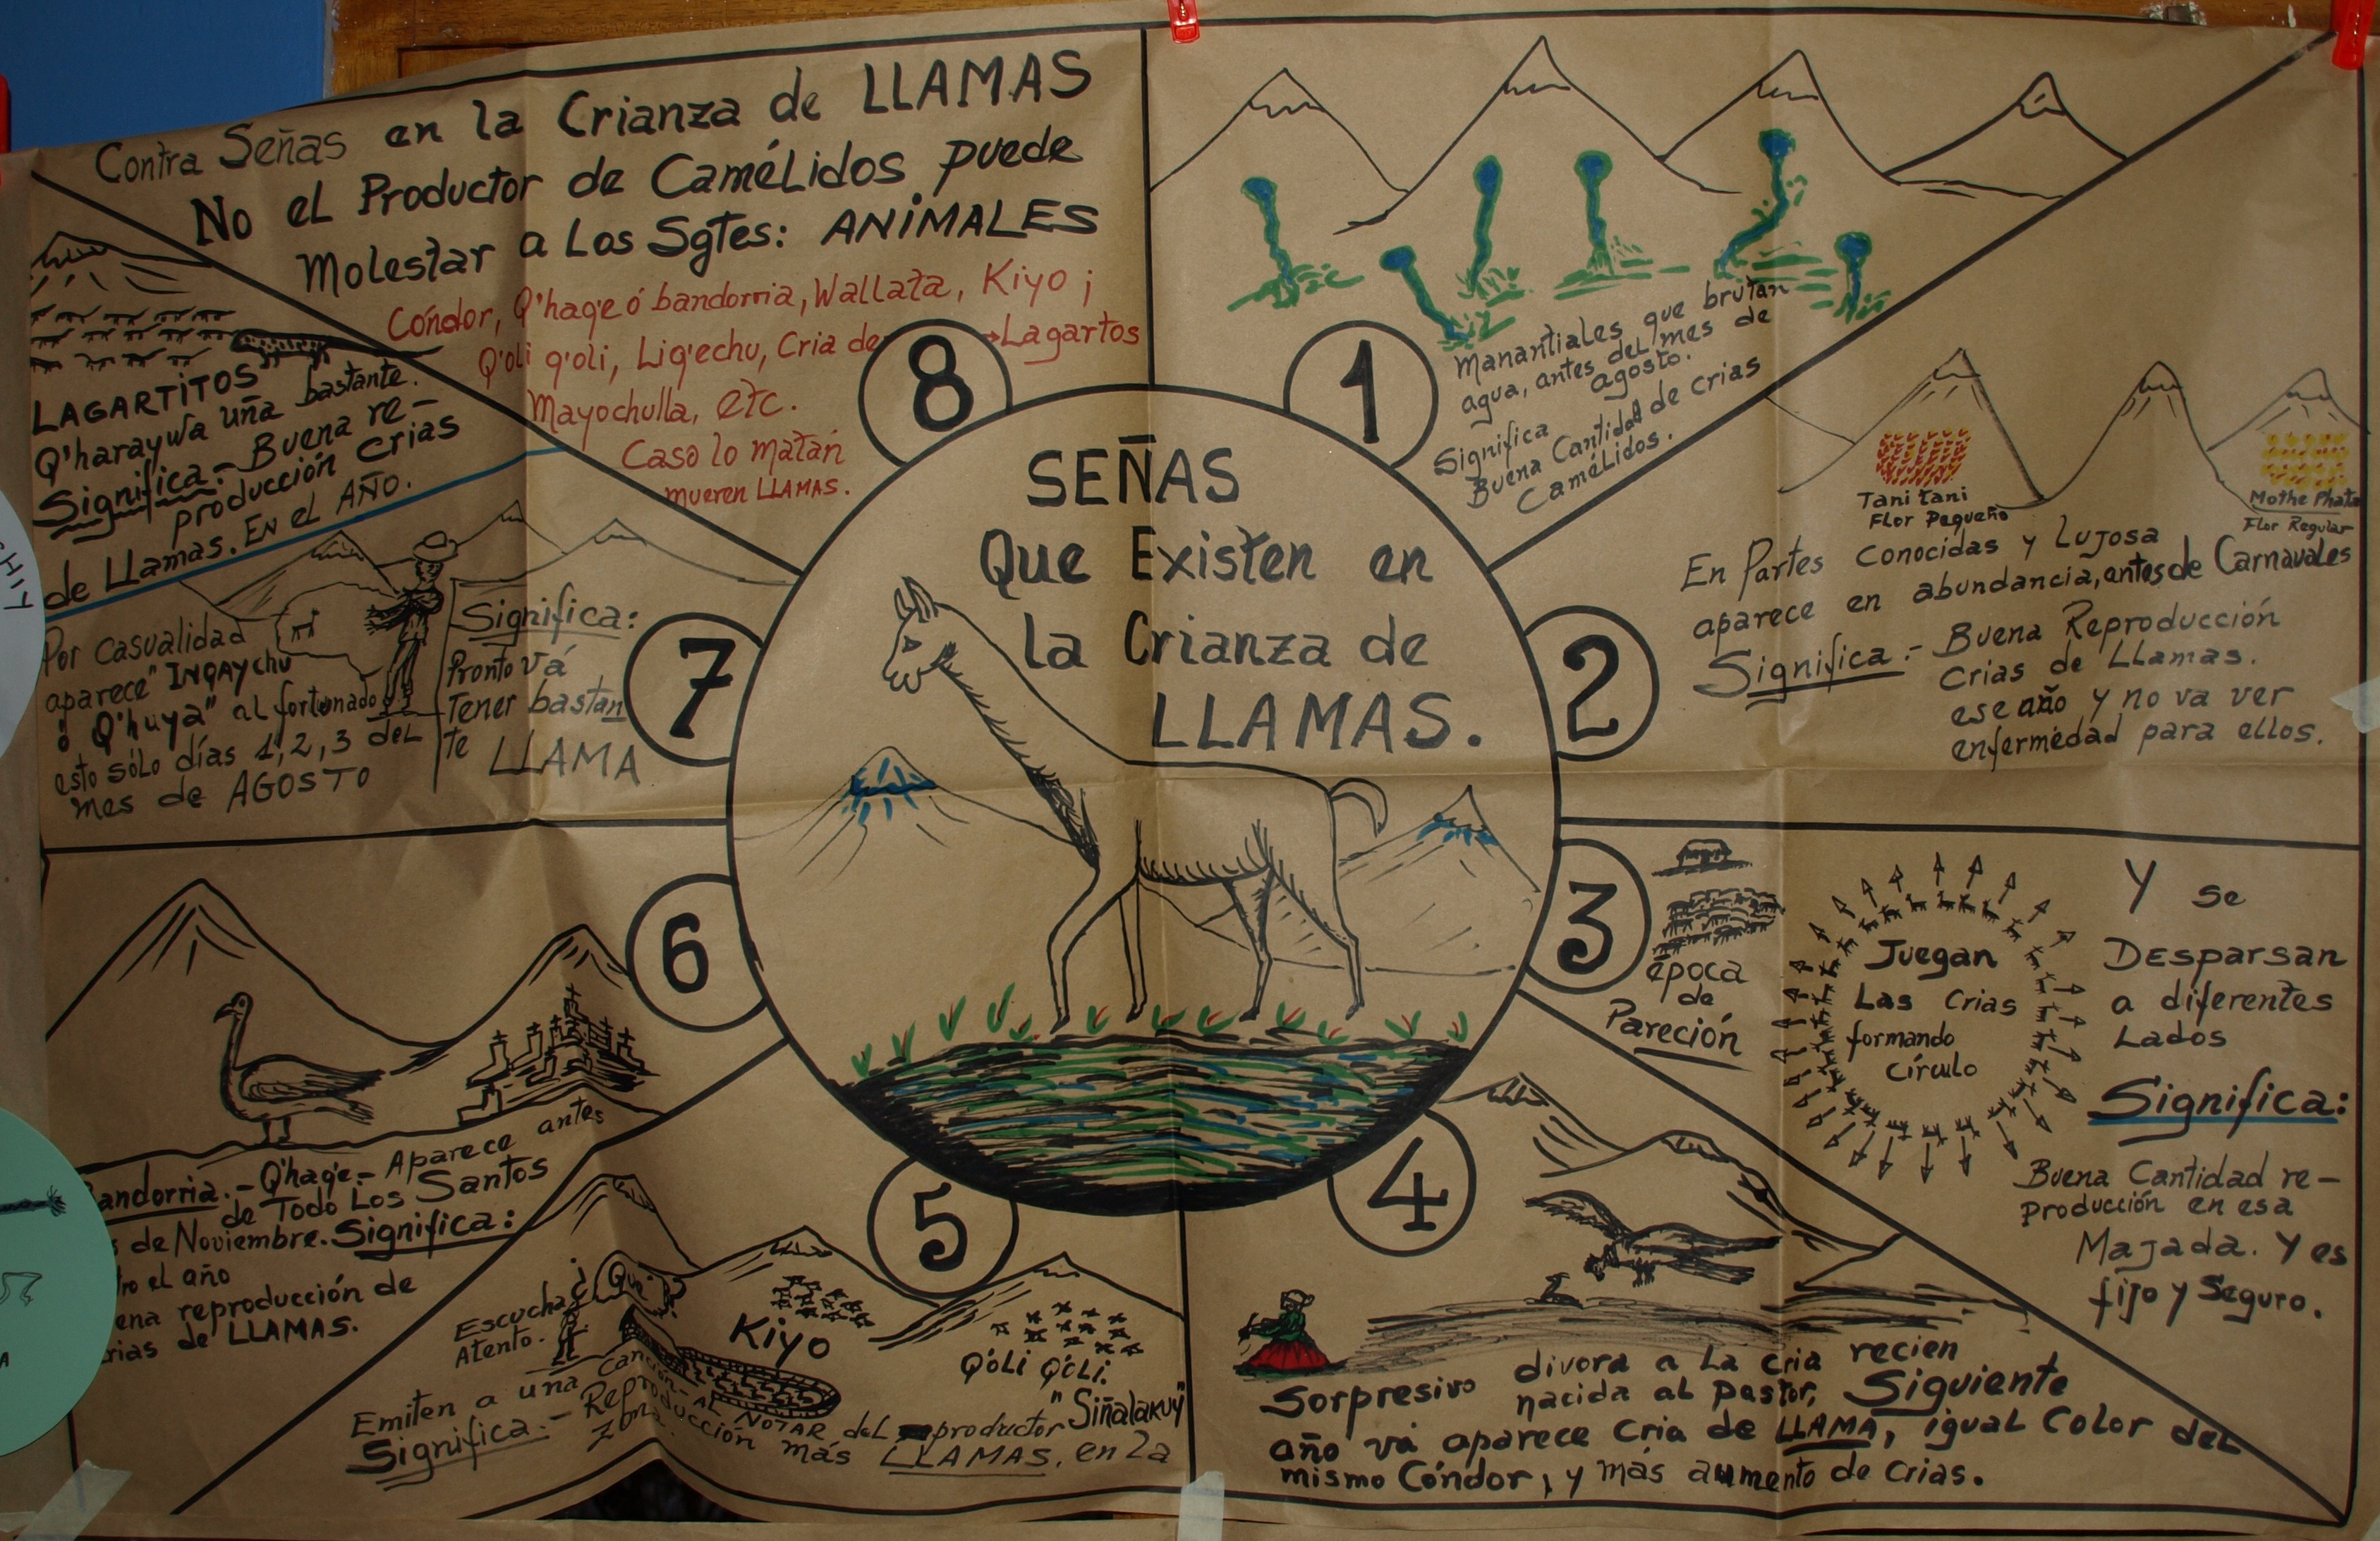 SEÑAS
Que Existen en
la Crianza de
LLAMAS.
1
Manantiales que brutan
agua, antes del mes de
agosto.
Significa
Buena Cantidad de crias
Camélidos.
2
Tani tani
Flor Pequeño
Mothe Phata
Flor Regular
En Partes conocidas y Lujosa
aparece en abundancia, antes de Carnavales
Significa.- Buena Reproducción
Crias de Llamas.
ese año y no va ver
enfermedad para ellos.
3
época
de
Pareción
Juegan
Las Crias
formando
círculo
Y se
Desparsan
a diferentes
Lados
Significa:
Buena Cantidad re-
producción en esa
Majada. Y es
fijo y Seguro.
4
Sorpresivo divora a La cria recien
nacida al pastor, Siguiente
año vá aparece cria de LLAMA, igual Color del
mismo Cóndor, y más aumento de crias.
5
Escucha
Atento.
¿Que
Kiyo
Q'OLi Q'OLi.
Emiten a una Canción - AL NOTAR del productor "Siñalakuy"
Significa.- Reproducción más LLAMAS, en la
zona.
6
andorria.- Q'haqe.- Aparece antes
de Todo Los Santos
de Noviembre. Significa:
el año
reproducción de
de LLAMAS.
7
LAGARTITOS
Q'haraywa uña bastante.
Significa.- Buena re-
producción crias
de Llamas. En el AÑO.
Por casualidad
aparece "INQAychu
ó Q'huya" al fortunado
esto sólo días 1, 2, 3 del
mes de AGOSTO
Significa:
Pronto vá
Tener bastan
te LLAMA
8
Contra Señas en la Crianza de LLAMAS
No el Productor de Camélidos puede
Molestar a Los Sgtes: ANiMALES
Cóndor, Q'haqe ó bandorria, Wallata, Kiyo ;
Q'oli q'oli, Liq'echu, Cria de → Lagartos
Mayochulla, etc.
Caso lo matan
mueren LLAMAS.